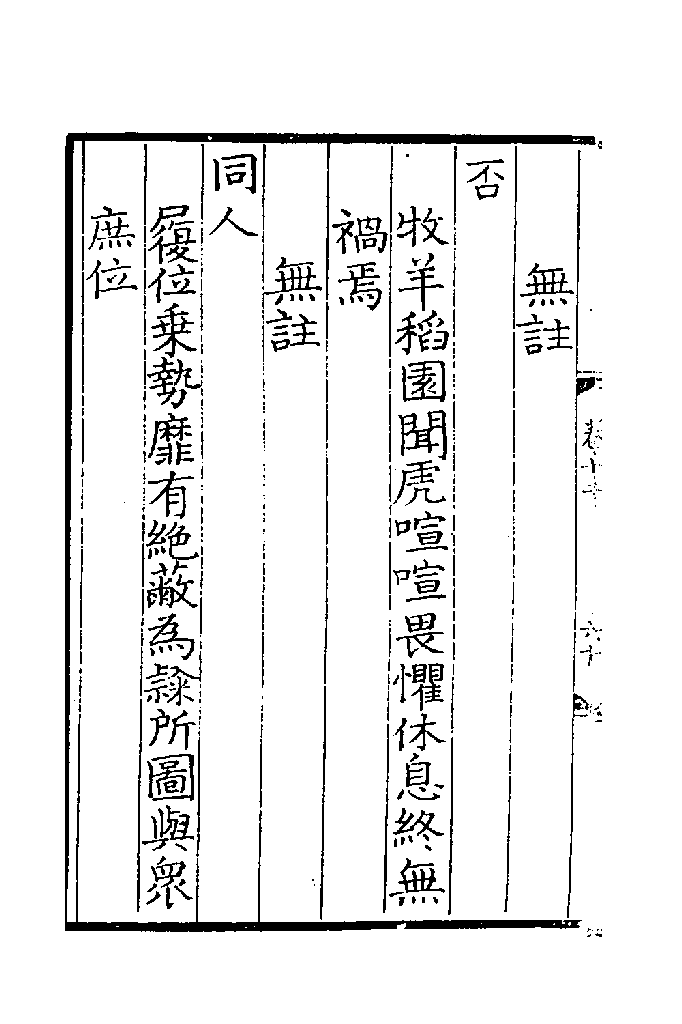 無註
否
牧羊稻園聞虎喧喧畏懼休息終無
禍焉
無註
同人
履位乗勢靡有絶蔽為𨽻所圖與衆
庶位